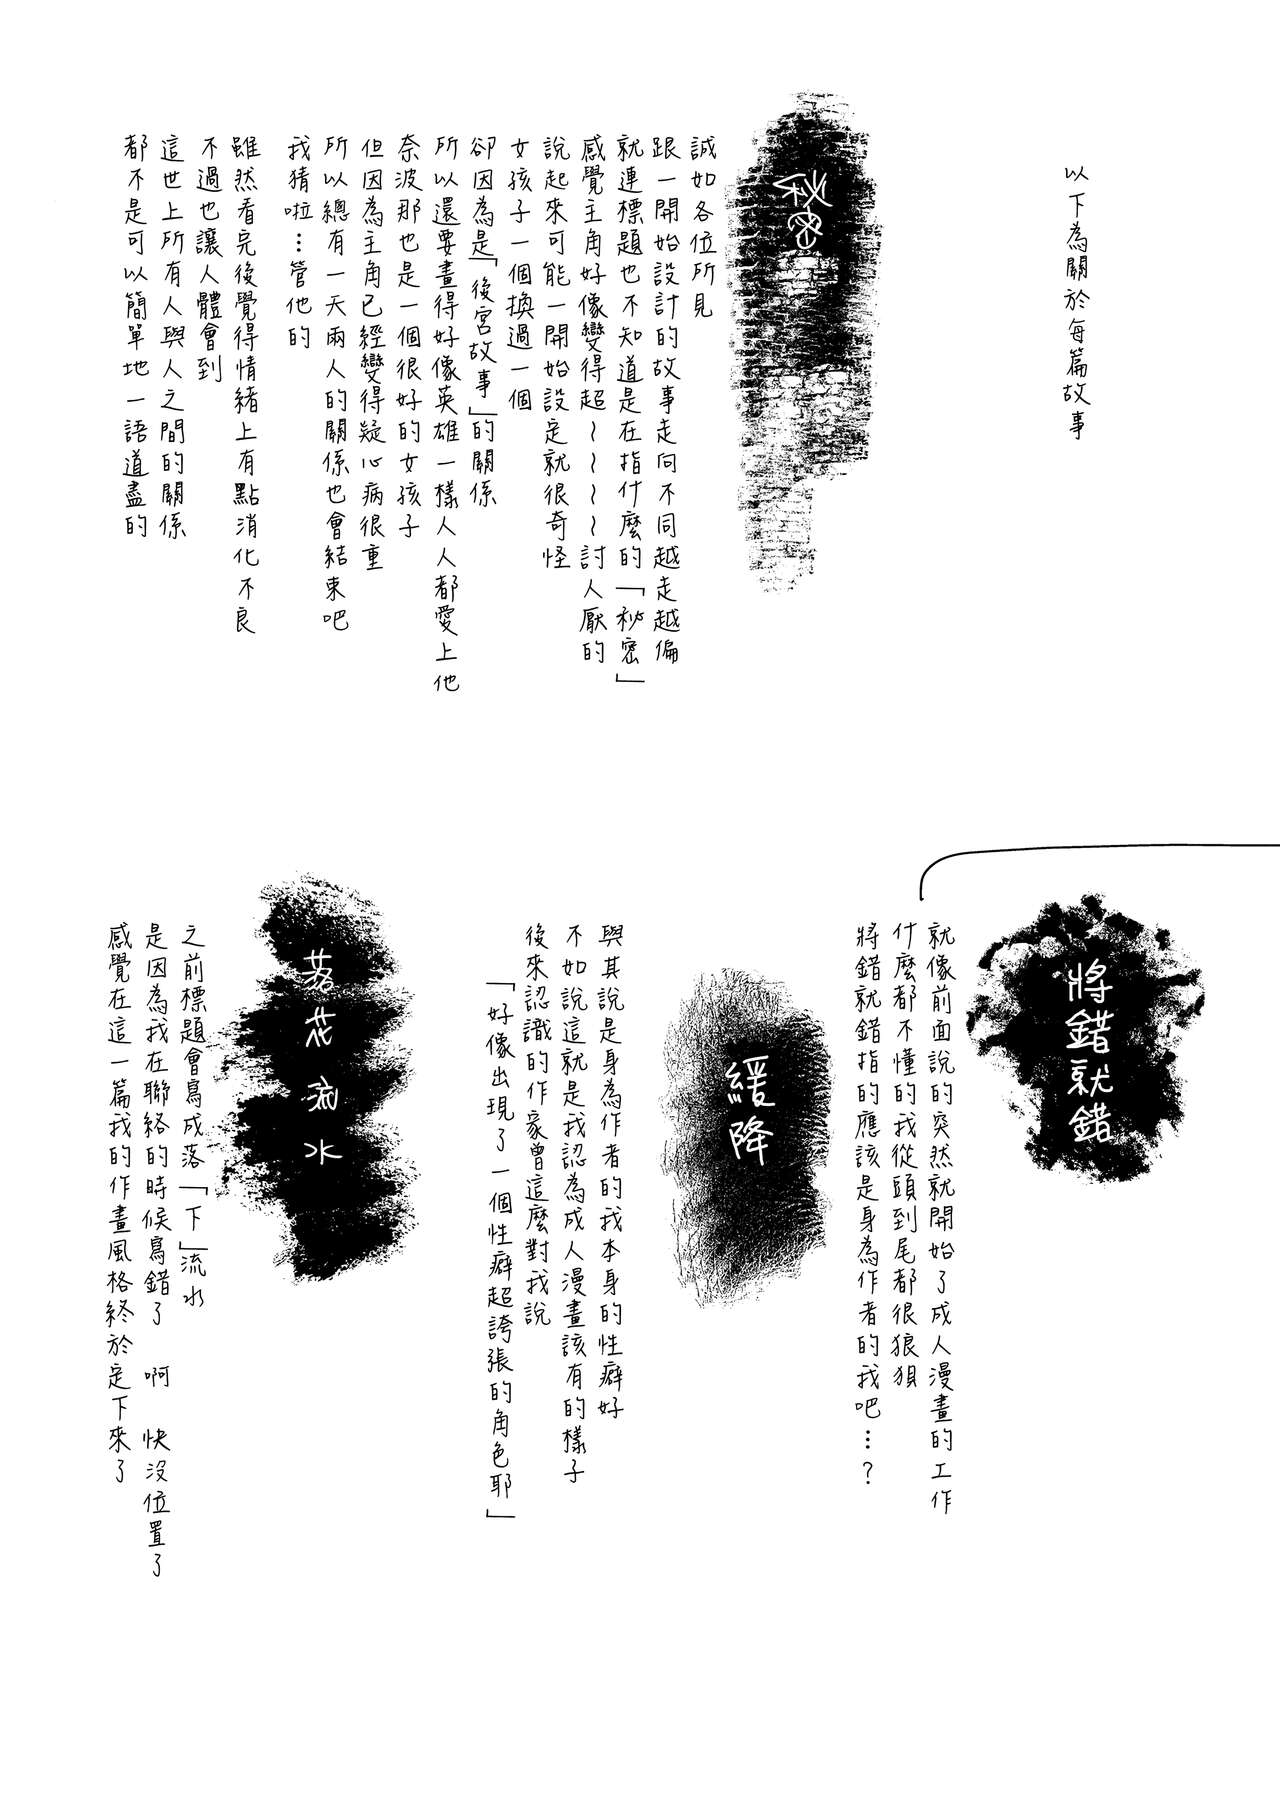 以下為關於每篇故事
秘密
誠如各位所見
跟一開始設計的故事走向不同越走越偏
就連標題也不知道是在指什麼的「秘密」
感覺主角好像變得超~~~~討人厭的
說起來可能一開始設定就很奇怪
女孩子一個換過一個
卻因為是「後宮故事」的關係
所以還要畫得好像英雄一樣人人都愛上他
奈波那也是一個很好的女孩子
但因為主角已經變得疑心病很重
所以總有一天兩人的關係也會結束吧
我猜啦…管他的
雖然看完後覺得情緒上有點消化不良
不過也讓人體會到
這世上所有人與人之間的關係
都不是可以簡單地一語道盡的
將錯就錯
就像前面說的突然就開始了成人漫畫的工作
什麼都不懂的我從頭到尾都很狼狽
將錯就錯指的應該是身為作者的我吧…?
緩降
與其說是身為作者的我本身的性癖好
不如說這就是我認為成人漫畫該有的樣子
後來認識的作家曾這麼對我說
「好像出現了一個性癖超誇張的角色耶」
落花流水
之前標題會寫成落「下」流水
是因為我在聯絡的時候寫錯了 啊 快沒位置了
感覺在這一篇我的作畫風格終於定下來了